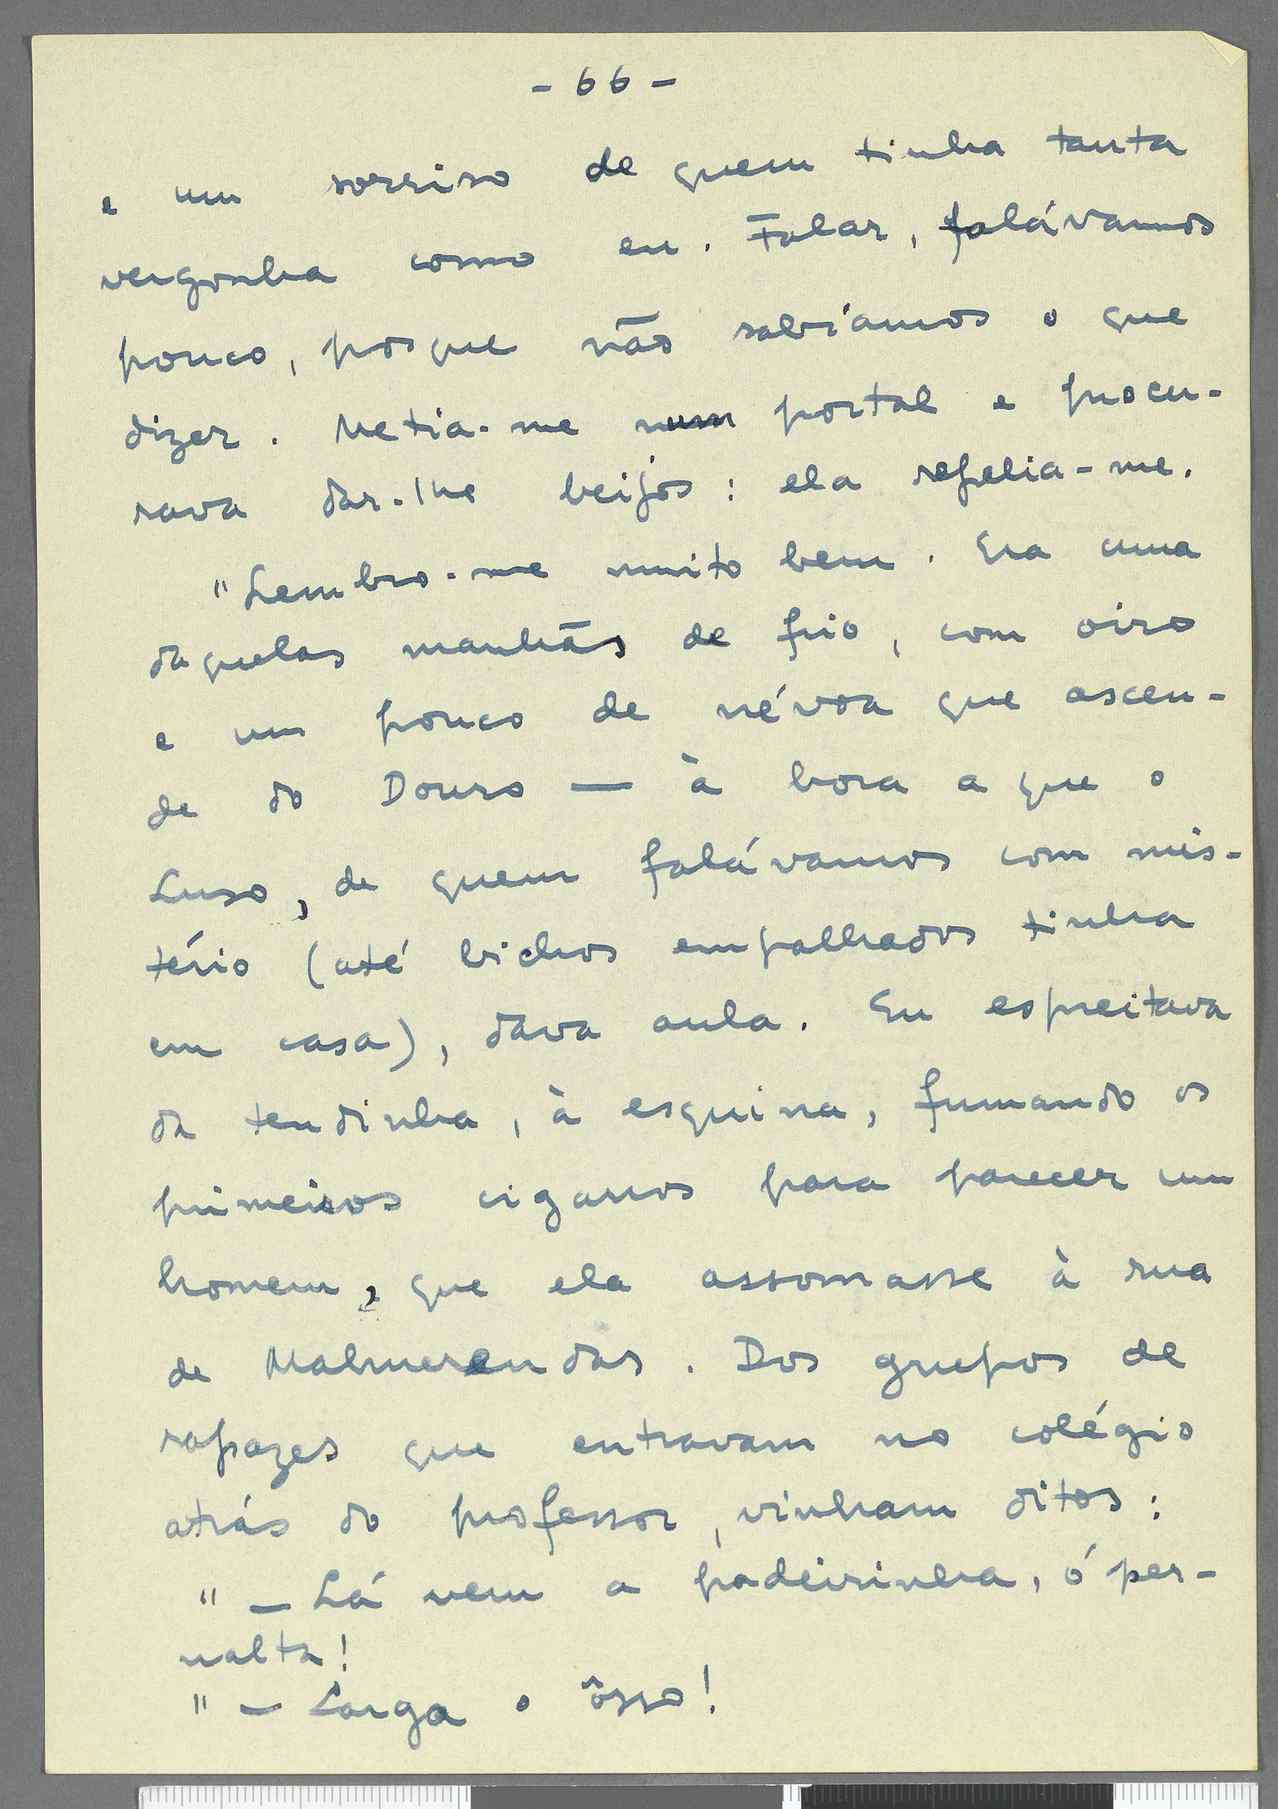 - 66 -
e um sorriso de quem tinha tanta
vergonha como eu. Falar, falávamos
pouco, porque não sabíamos o que
dizer. Metia-me num portal e procu-
rava dar-lhe beijos: ela repelia-me.
"Lembro-me muito bem. Era uma
daquelas manhãs de frio, com oiro
e um pouco de névoa que ascen-
de do Douro — à hora a que o
Luso, de quem falávamos com mis-
tério (até bichos empalhados tinha
em casa), dava aula. Eu espreitava
da tendinha, à esquina, fumando os
primeiros cigarros para parecer um
homem, que ela assomasse à rua
de Malmerendas. Dos grupos de
rapazes que entravam no colégio
atrás do professor, vinham ditos:
" — Lá vem a padeirinha, ó per-
nalta!
" — Larga o ôsso!